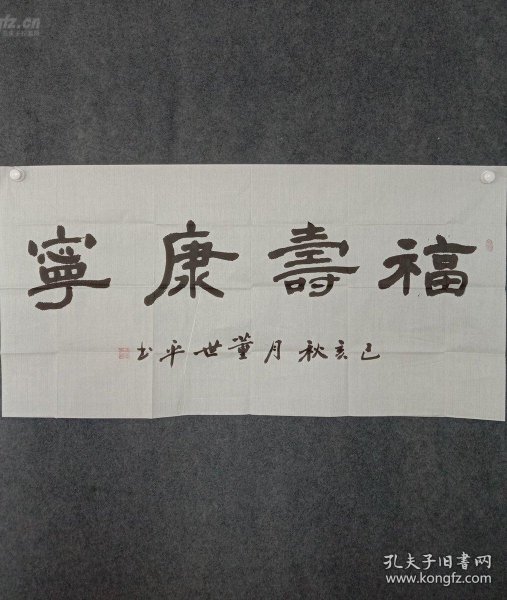 福壽康寧
己亥秋月董世平书
孔夫子旧书网
www.kongfz.com
gfz.cn